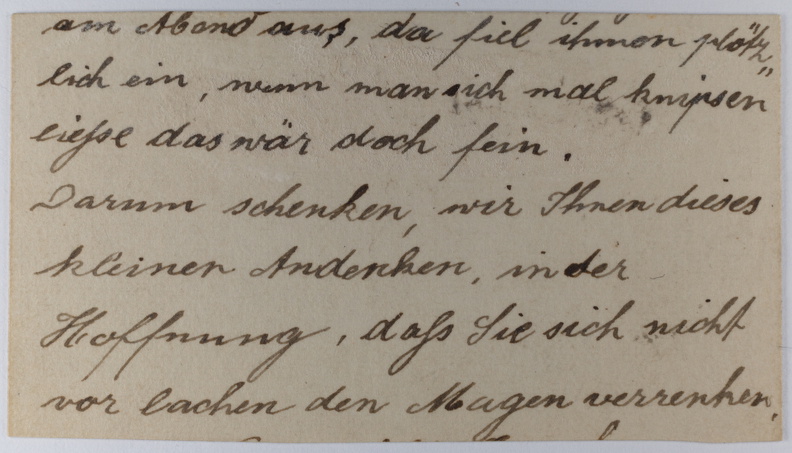 am Abend aus, da fiel ihnen plötz"
lich ein, wenn man sich mal knipsen"
ließe das wär doch fein.
Darum schenken, wir Ihnen dieses
kleinen Andenken, in der
Hoffnung, daß Sie sich nicht
vor lachen den Magen verrenken,